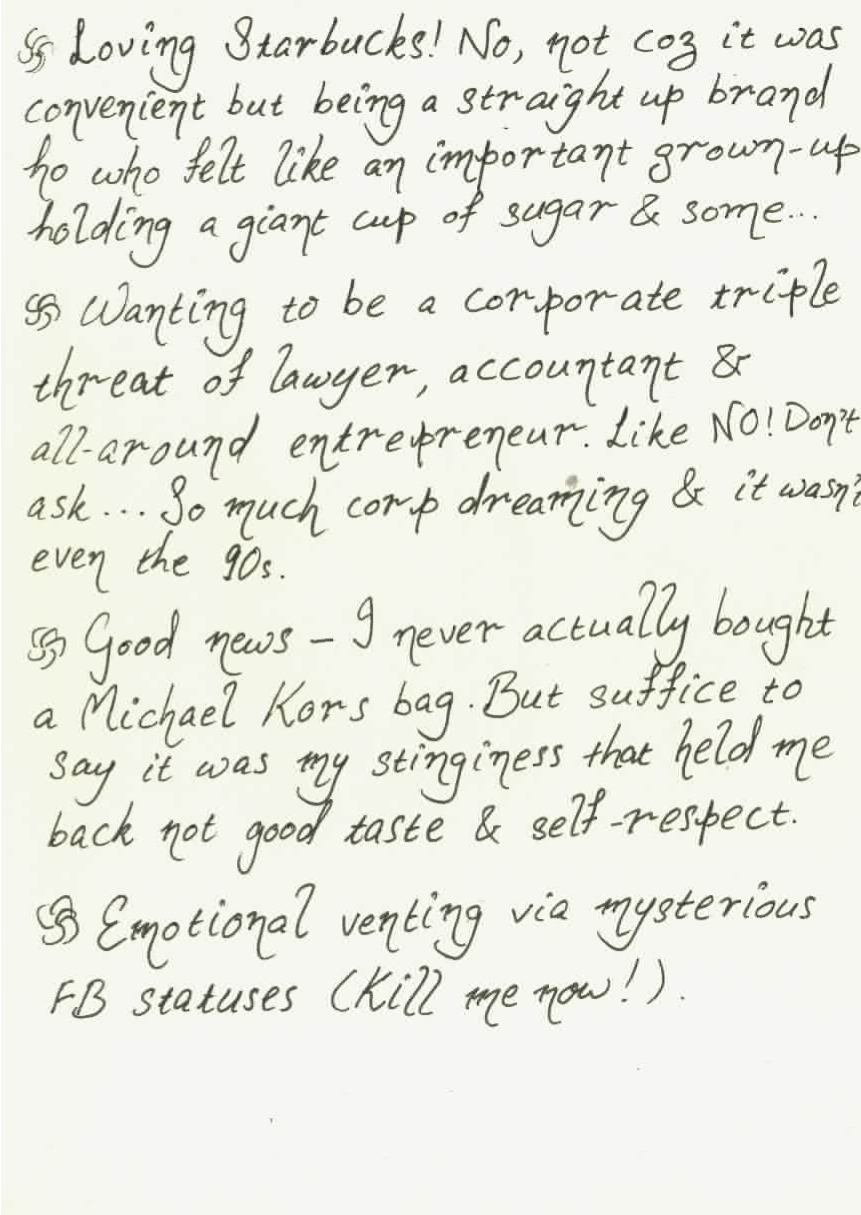 Loving Starbucks! No, not coz it was
convenient but being a straight up brand
ho who felt like an important grown-up
holding a giant cup of sugar & some...
Wanting to be a corporate triple
threat of lawyer, accountant &
all-around entrepreneur. Like NO! Don't
ask... So much corp dreaming & it wasn't
even the 90s.
Good news – I never actually bought
a Michael Kors bag. But suffice to
say it was my stinginess that held me
back not good taste & self-respect.
Emotional venting via mysterious
FB statuses (Kill me now!).